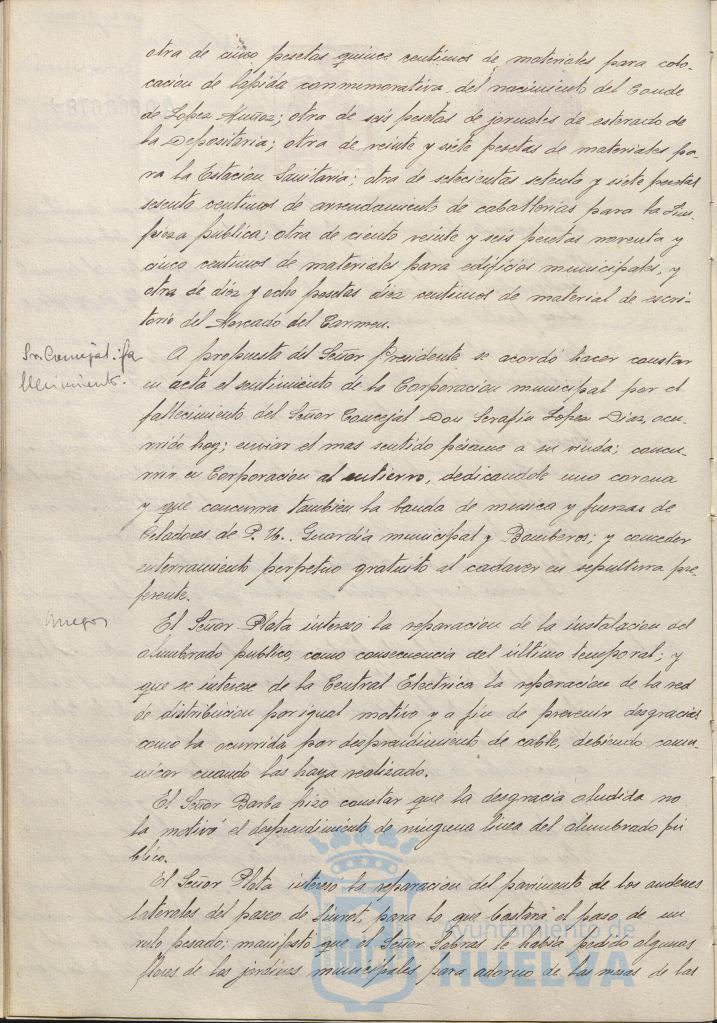 otra de cinco pesetas quince centimos de materiales para colo-
cacion de lápida conmemorativa del nacimiento del Conde
de Lopez Muñoz; otra de seis pesetas de jornales de esterado de
la Depositaria; otra de veinte y siete pesetas de materiales pa-
ra la Estacion Sanitaria; otra de setecientas setenta y siete pesetas
sesenta centimos de arrendamiento de caballerias para la Lim-
pieza pública; otra de ciento veinte y seis pesetas noventa y
cinco centimos de materiales para edificios municipales, y
otra de diez y ocho pesetas diez centimos de material de escri-
torio del Mercado del Carmen.
Sr. Concejal: fa
llecimiento.
A propuesta del Señor Presidente se acordó hacer constar
en acta el sentimiento de la Corporacion municipal por el
fallecimiento del Señor Concejal Don Serafin Lopez Diaz, ocu-
rrido hoy; enviar el mas sentido pésame a su viuda; concu-
rrir en Corporacion al entierro, dedicandole una corona
y que concurra tambien la banda de musica y fuerzas de
Celadores de P. U., Guardia municipal y Bomberos; y conceder
enterramiento perpetuo gratuito al cadaver en sepultura pre-
ferente.
Ruegos
El Señor Plata interesó la reparacion de la instalacion del
alumbrado publico, como consecuencia del último temporal; y
que se interese de la Central Electrica la reparacion de la red
de distribucion por igual motivo y a fin de prevenir desgracias
como la ocurrida por desprendimiento de cable, debiendo comu-
nicar cuando las haya realizado.
El Señor Barba hizo constar que la desgracia aludida no
la motivó el desprendimiento de ninguna linea del alumbrado pú-
blico.
El Señor Plata interesó la reparacion del pavimento de los andenes
laterales del paseo de Siurot, para lo que bastará el paso de un
rulo pesado; manifestó que el Señor Sabras le habia pedido algunas
flores de los jardines municipales para adorno de las mesas de las
Ayuntamiento de
HUELVA